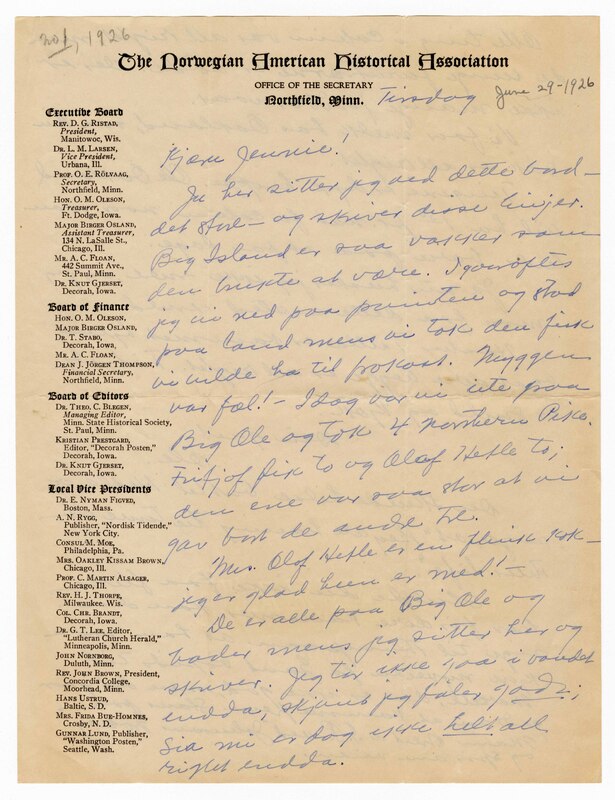 no 1, 1926
The Norwegian American Historical Association
OFFICE OF THE SECRETARY
Northfield, Minn.
Tirsdag June 29-1926
Executive Board
REV. D. G. RISTAD,
President,
Manitowoc, Wis.
DR. L. M. LARSEN,
Vice President,
Urbana, Ill.
PROF. O. E. RÖLVAAG,
Secretary,
Northfield, Minn.
HON. O. M. OLESON,
Treasurer,
Ft. Dodge, Iowa.
MAJOR BIRGER OSLAND,
Assistant Treasurer,
134 N. LaSalle St.,
Chicago, Ill.
MR. A. C. FLOAN,
442 Summit Ave.,
St. Paul, Minn.
DR. KNUT GJERSET,
Decorah, Iowa.
Board of Finance
HON. O. M. OLESON,
MAJOR BIRGER OSLAND,
DR. T. STABO,
Decorah, Iowa.
MR. A. C. FLOAN,
DEAN J. JÖRGEN THOMPSON,
Financial Secretary,
Northfield, Minn.
Board of Editors
DR. THEO. C. BLEGEN,
Managing Editor,
Minn. State Historical Society,
St. Paul, Minn.
KRISTIAN PRESTGARD,
Editor, "Decorah Posten,"
Decorah, Iowa.
DR. KNUT GJERSET,
Decorah, Iowa.
Local Vice Presidents
DR. E. NYMAN FIGVED,
Boston, Mass.
A. N. RYGG,
Publisher, "Nordisk Tidende,"
New York City.
CONSUL M. MOE,
Philadelphia, Pa.
MRS. OAKLEY KISSAM BROWN,
Chicago, Ill.
PROF. C. MARTIN ALSAGER,
Chicago, Ill.
REV. H. J. THORPE,
Milwaukee, Wis.
COL. CHR. BRANDT,
Decorah, Iowa.
DR. G. T. LEE, Editor,
"Lutheran Church Herald,"
Minneapolis, Minn.
JOHN NORNBORG,
Duluth, Minn.
REV. JOHN BROWN, President,
Concordia College,
Moorhead, Minn.
HANS USTRUD,
Baltic, S. D.
MRS. FRIDA BUE-HOMNES,
Crosby, N. D.
GUNNAR LUND, Publisher,
"Washington Posten,"
Seattle, Wash.
Kjære Jennie!
Ja her sitter jeg ved dette bord –
det store – og skriver disse linjer.
Big Island er saa vakker som
den brukte at være. Igaaraftes
jeg vi ned paa pointen og stod
paa land mens vi tok den fisk
vi vilde ha til frokost. Myggen
var fæl! – Idag var vi ute paa
Big Ole og tok 4 Northern Pike.
Fritjof fik to og Olaf Hefle to;
den ene var saa stor at vi
gav bort de andre tre.
Mrs. Olaf Hefle er en flink kok –
jeg er glad hun er med! –
De er alle paa Big Ole og
bader mens jeg sitter her og
skriver. Jeg tør ikke gaa i vandet
endda, skjønt jeg føler god;
sia mi er dog ikke helt all
right endda.